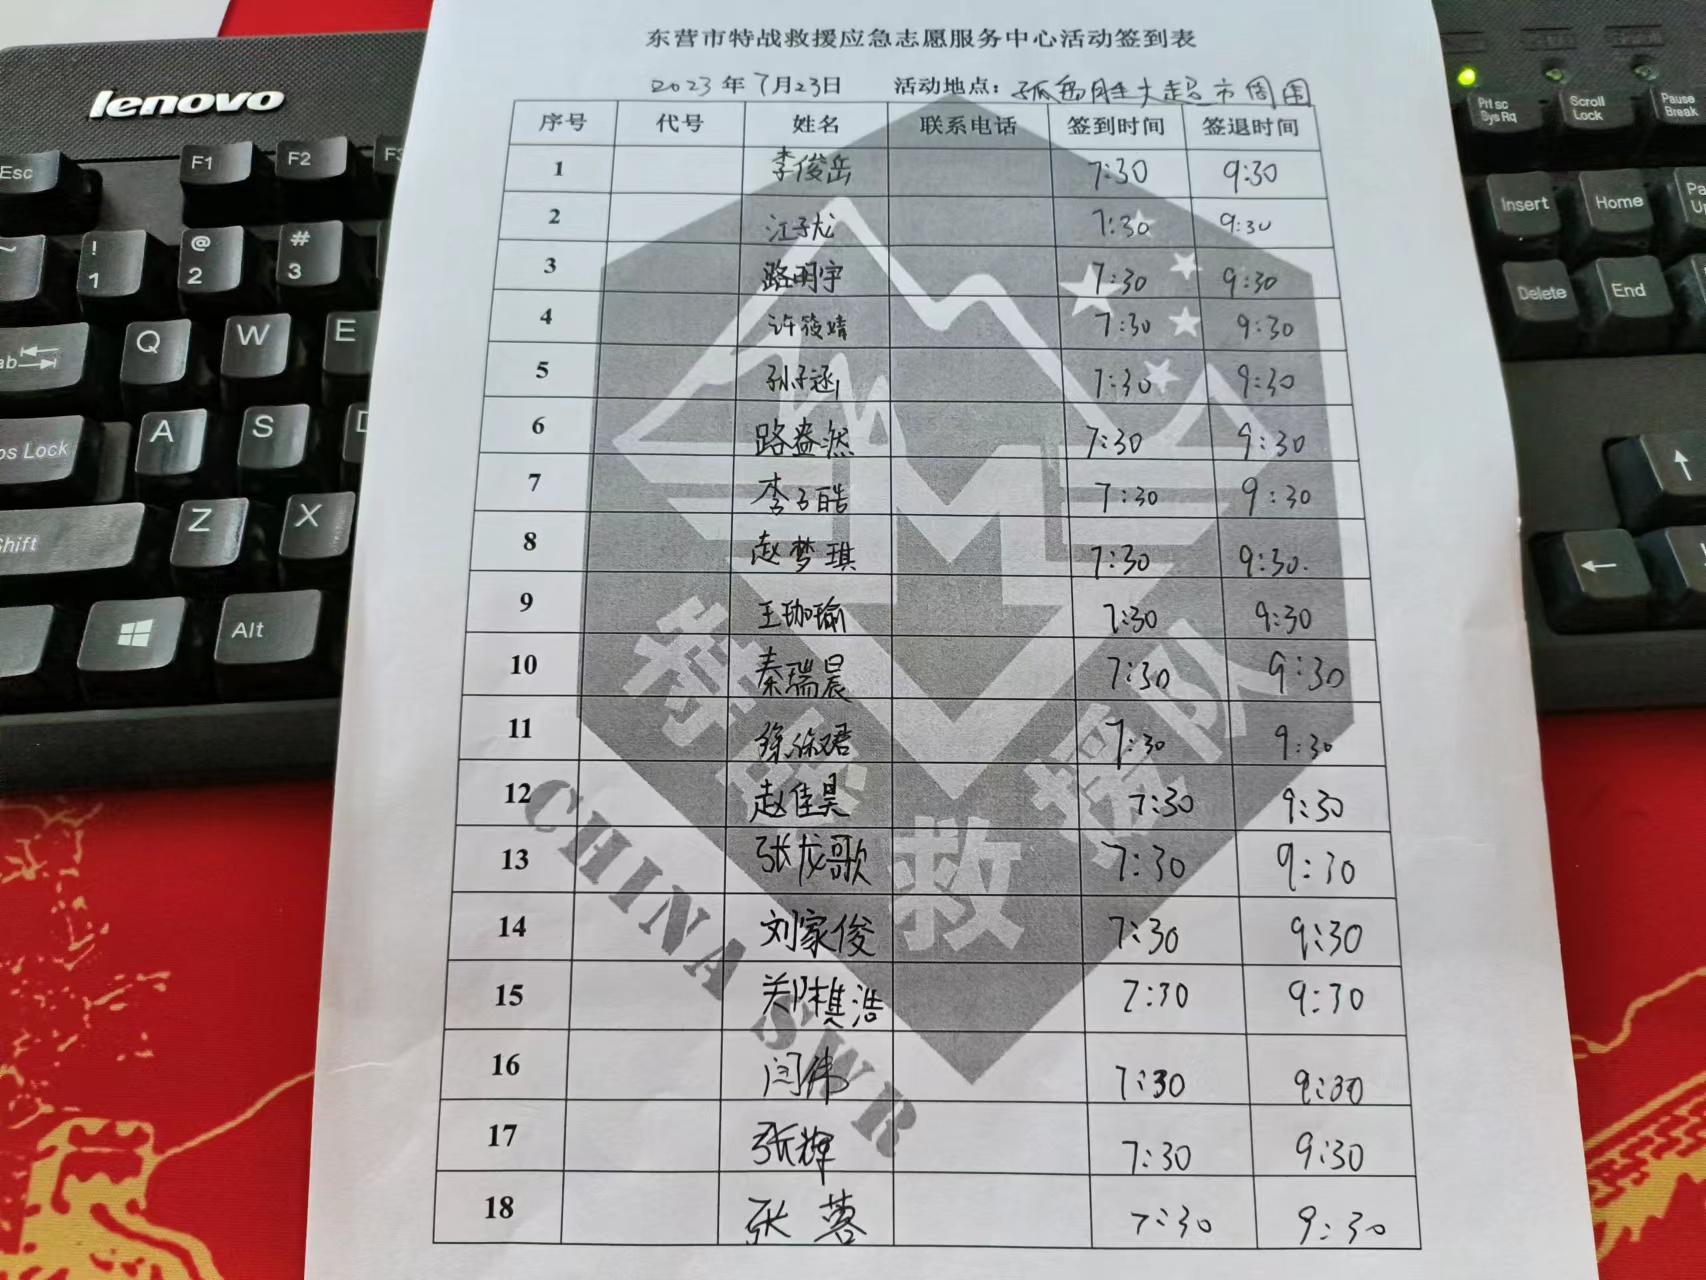 lenovo
Esc F1 F2 F3
~ ! 1 @ 2 # 3
Q W E
A S D
Caps Lock
Z X
Shift
Alt
Prt sc Sys Rq Scroll Lock Pause Break
Insert Home
Delete End
东营市特战救援应急志愿服务中心活动签到表
2023年7月23日 活动地点：孤岛胜大超市周围
序号 代号 姓名 联系电话 签到时间 签退时间
1 李俊岳 7:30 9:30
2 江子龙 7:30 9:30
3 路明宇 7:30 9:30
4 许筱婧 7:30 9:30
5 孙子涵 7:30 9:30
6 路盎然 7:30 9:30
7 李子皓 7:30 9:30
8 赵梦琪 7:30 9:30.
9 王珈瑜 7:30 9:30
10 秦瑞晨 7:30 9:30
11 7:30 9:30
12 赵佳昊 7:30 9:30
13 张龙歌 7:30 9:30
14 刘家俊 7:30 9:30
15 7:30 9:30
16 闫伟 7:30 9:30
17 张辉 7:30 9:30
18 张蓉 7:30 9:30
特战救援队
CHINA SWR